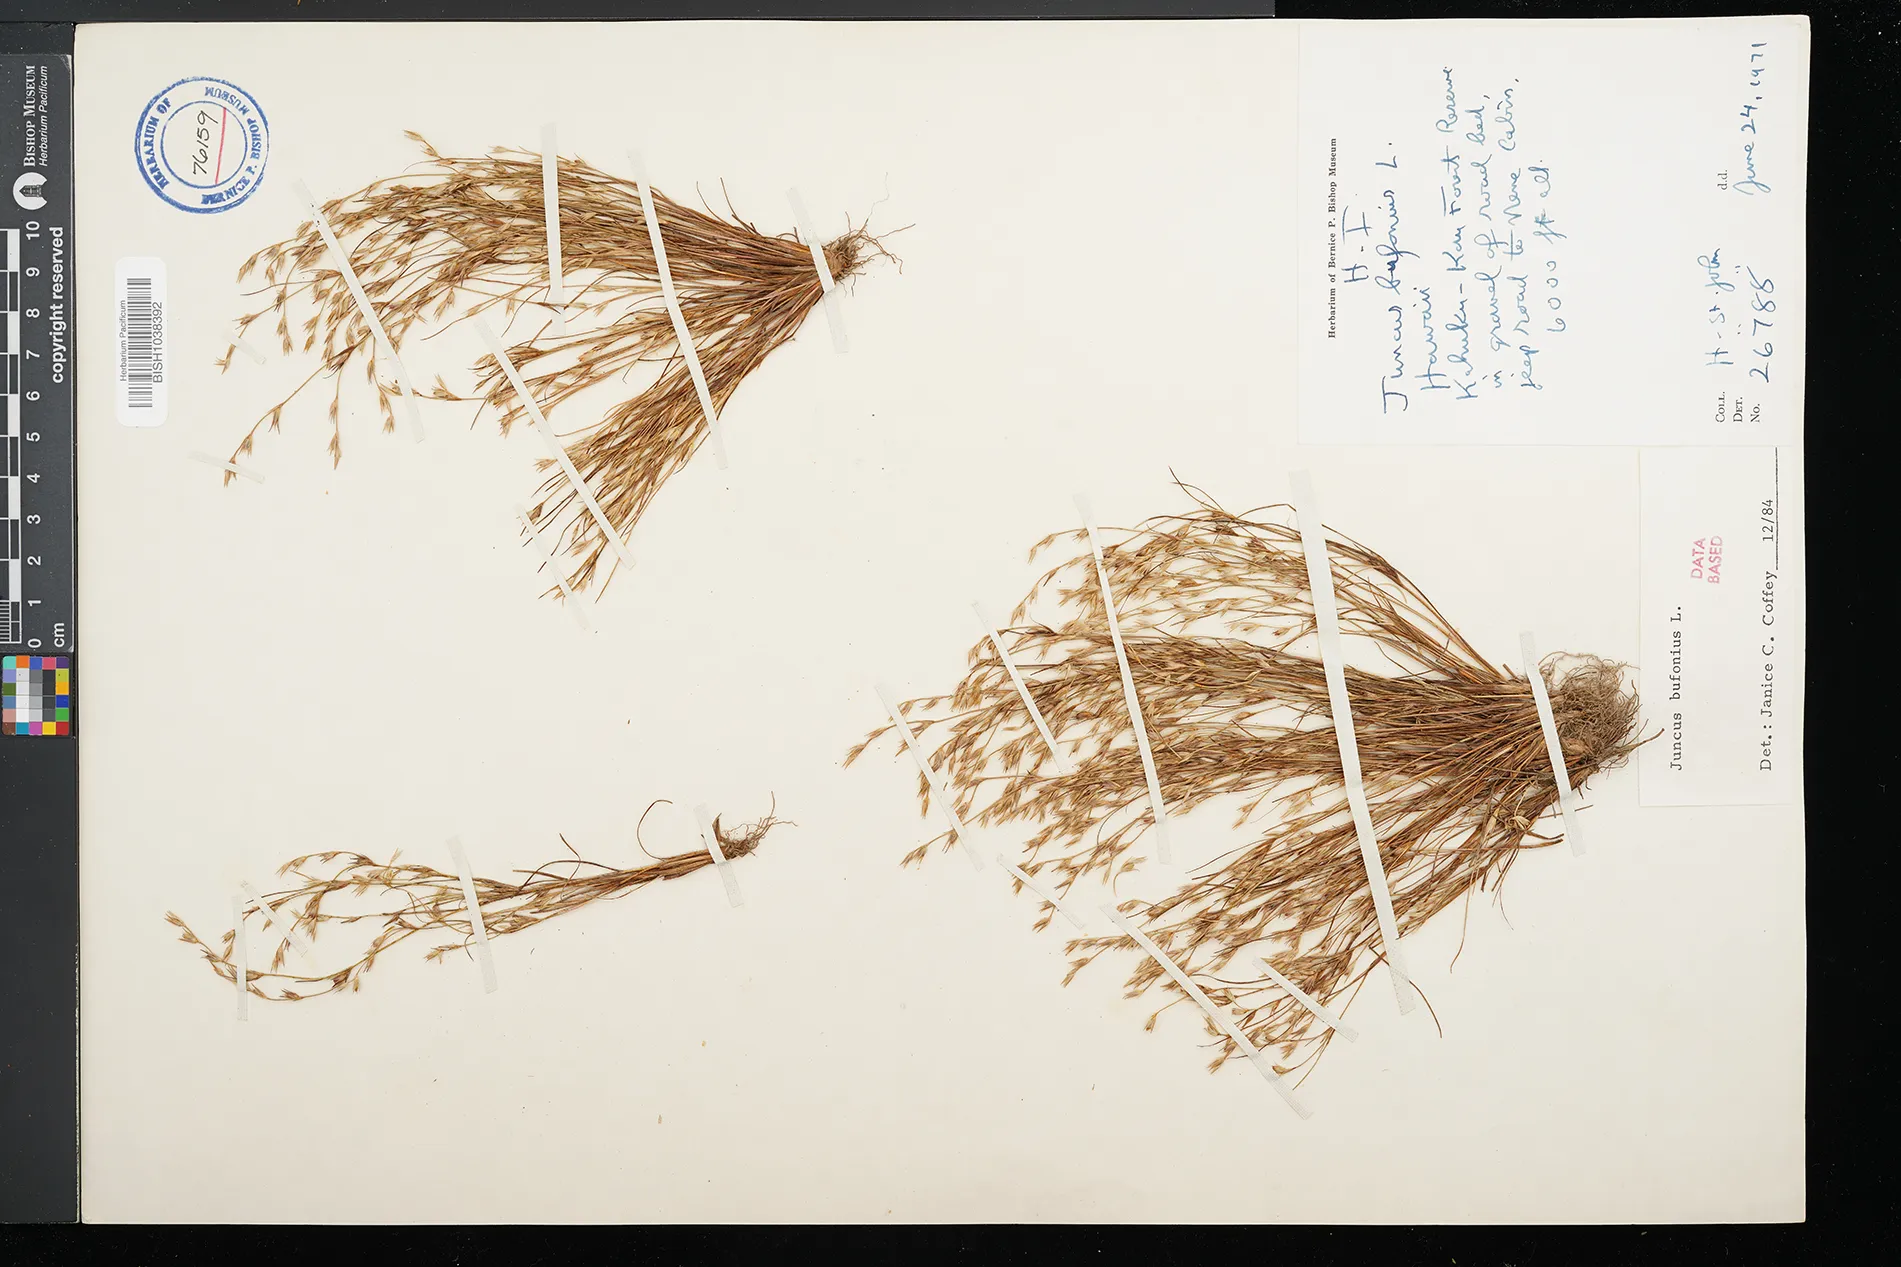 BISHOP MUSEUM
Herbarium Pacificum
copyright reserved
10
9
8
7
6
5
4
3
2
1
0
cm
HERBARIUM OF
BERNICE P. BISHOP MUSEUM
76159
Herbarium Pacificum
BISH1038392
Herbarium of Bernice P. Bishop Museum
H - I
Juncus bufonius L.
Hawaii
Kahuku - Kau Forest Reserve
in gravel of road bed,
jeep road to Nene Cabin,
6000 ft alt.
COLL. H. St. John
DET. d.d.
No. 26788 June 24, 1971
Juncus bufonius L.
DATA
BASED
Det.: Janice C. Coffey 12/84